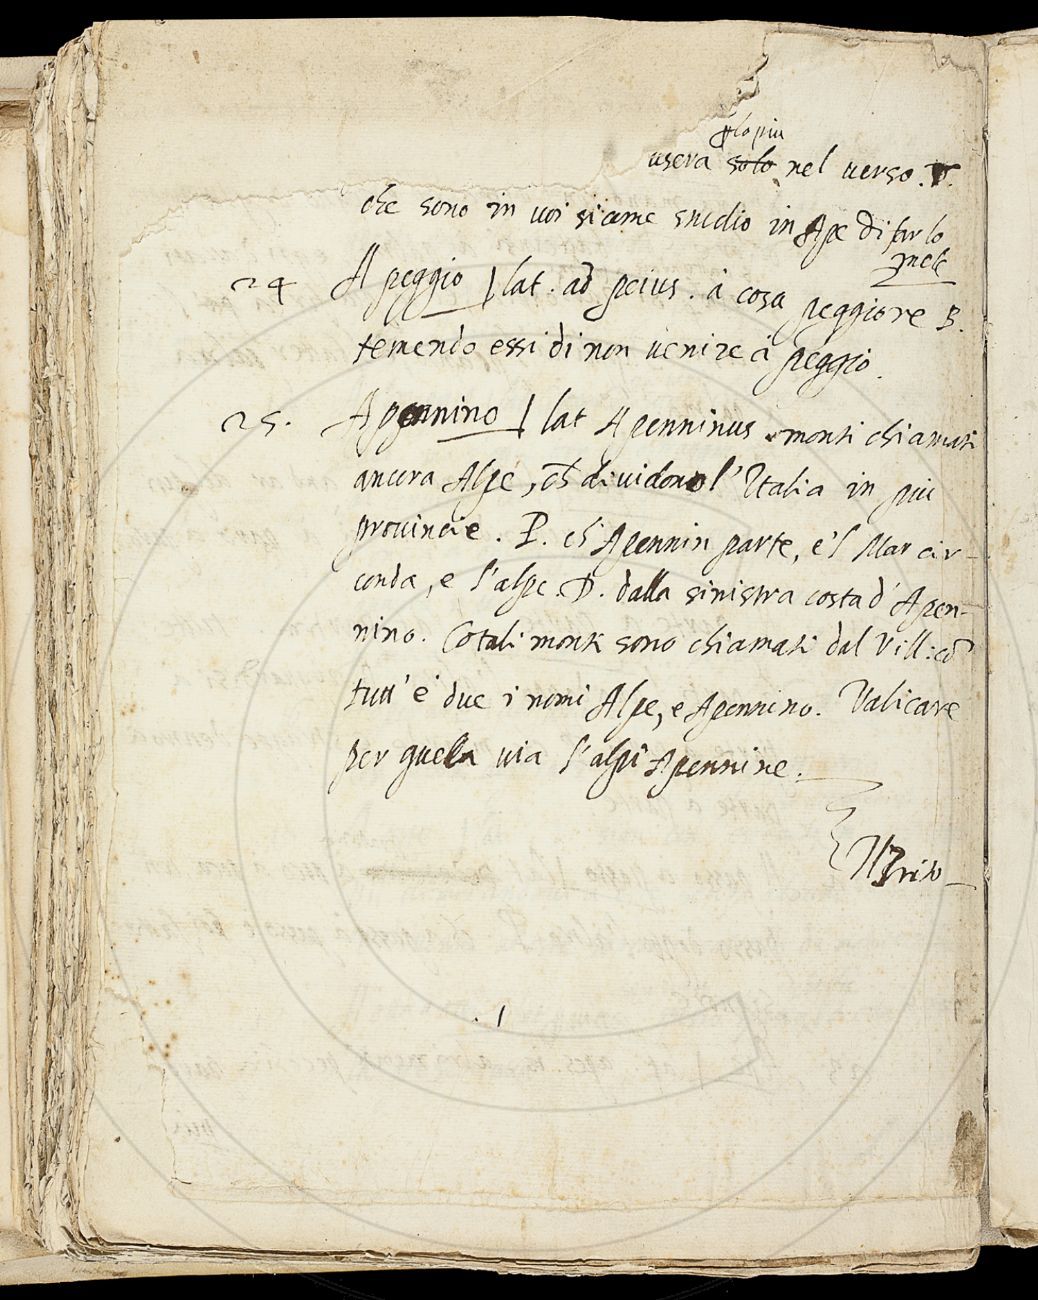 p lo piu
usera solo nel uerso. D.
che sono in uoi si come studio in Ape di far lo
mele
24 A peggio | lat. ad peius. à cosa peggiore B.
temendo essi di non uenire à peggio.
25. Apennino | lat Apenninus. monti chiamati
ancora Alpe, ch̃ diuidono l'Italia in piu
prouincie. P. ch'Apennin parte, e'l Mar cir-
conda, e l'alpe. D. dalla sinistra costa d'Apen-
nino. Cotali monti sono chiamati dal Vill: cõ
tutt'e due i nomi Alpe, e Apennino. Valicare
per quella uia l'alpi Apennine.